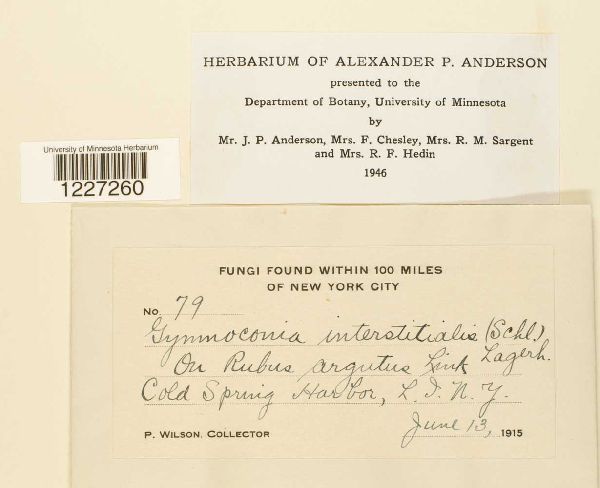 HERBARIUM OF ALEXANDER P. ANDERSON
presented to the
Department of Botany, University of Minnesota
by
Mr. J. P. Anderson, Mrs. F. Chesley, Mrs. R. M. Sargent
and Mrs. R. F. Hedin
1946
University of Minnesota Herbarium
1227260
FUNGI FOUND WITHIN 100 MILES
OF NEW YORK CITY
No. 79
Gymnoconia interstitialis (Schl.)
Lagerh.
On Rubus argutus Link
Cold Spring Harbor, L. I. N. Y.
June 13, 1915
P. WILSON, COLLECTOR